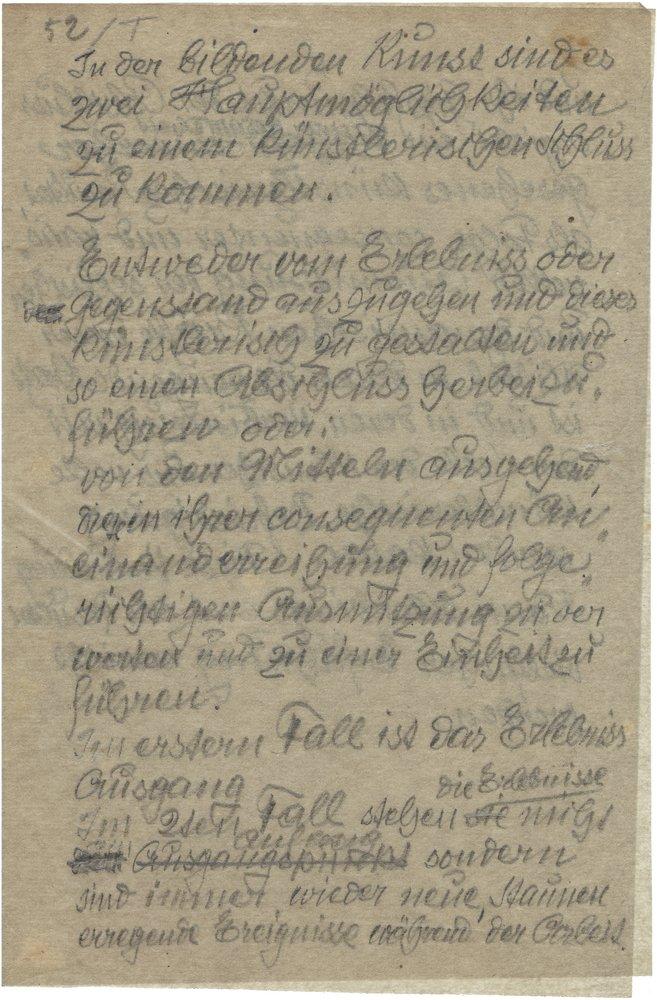 52/I
In der bildenden Kunst sind es
zwei Hauptmöglichkeiten
zu einem künstlerischen Schluss
zu kommen.
Entweder vom Erlebniss oder
Gegenstand auszugehen und dieses
künstlerisch zu gestalten und
so einen Abschluss herbeizu„
führen oder:
von den Mitteln ausgehend,
die in ihrer consequenten An„
einanderreihung und folge„
richtigen Ausnützung zu ver
werten und zu einer Einheit zu
führen.
Im erstern Fall ist das Erlebniss
Ausgang
die Erlebnisse
Im 2ten Fall stehen sie nicht
Anfang
Ausgangspunkt sondern
sind immer wieder neue, Staunen
erregende Ereignisse während der Arbeit.